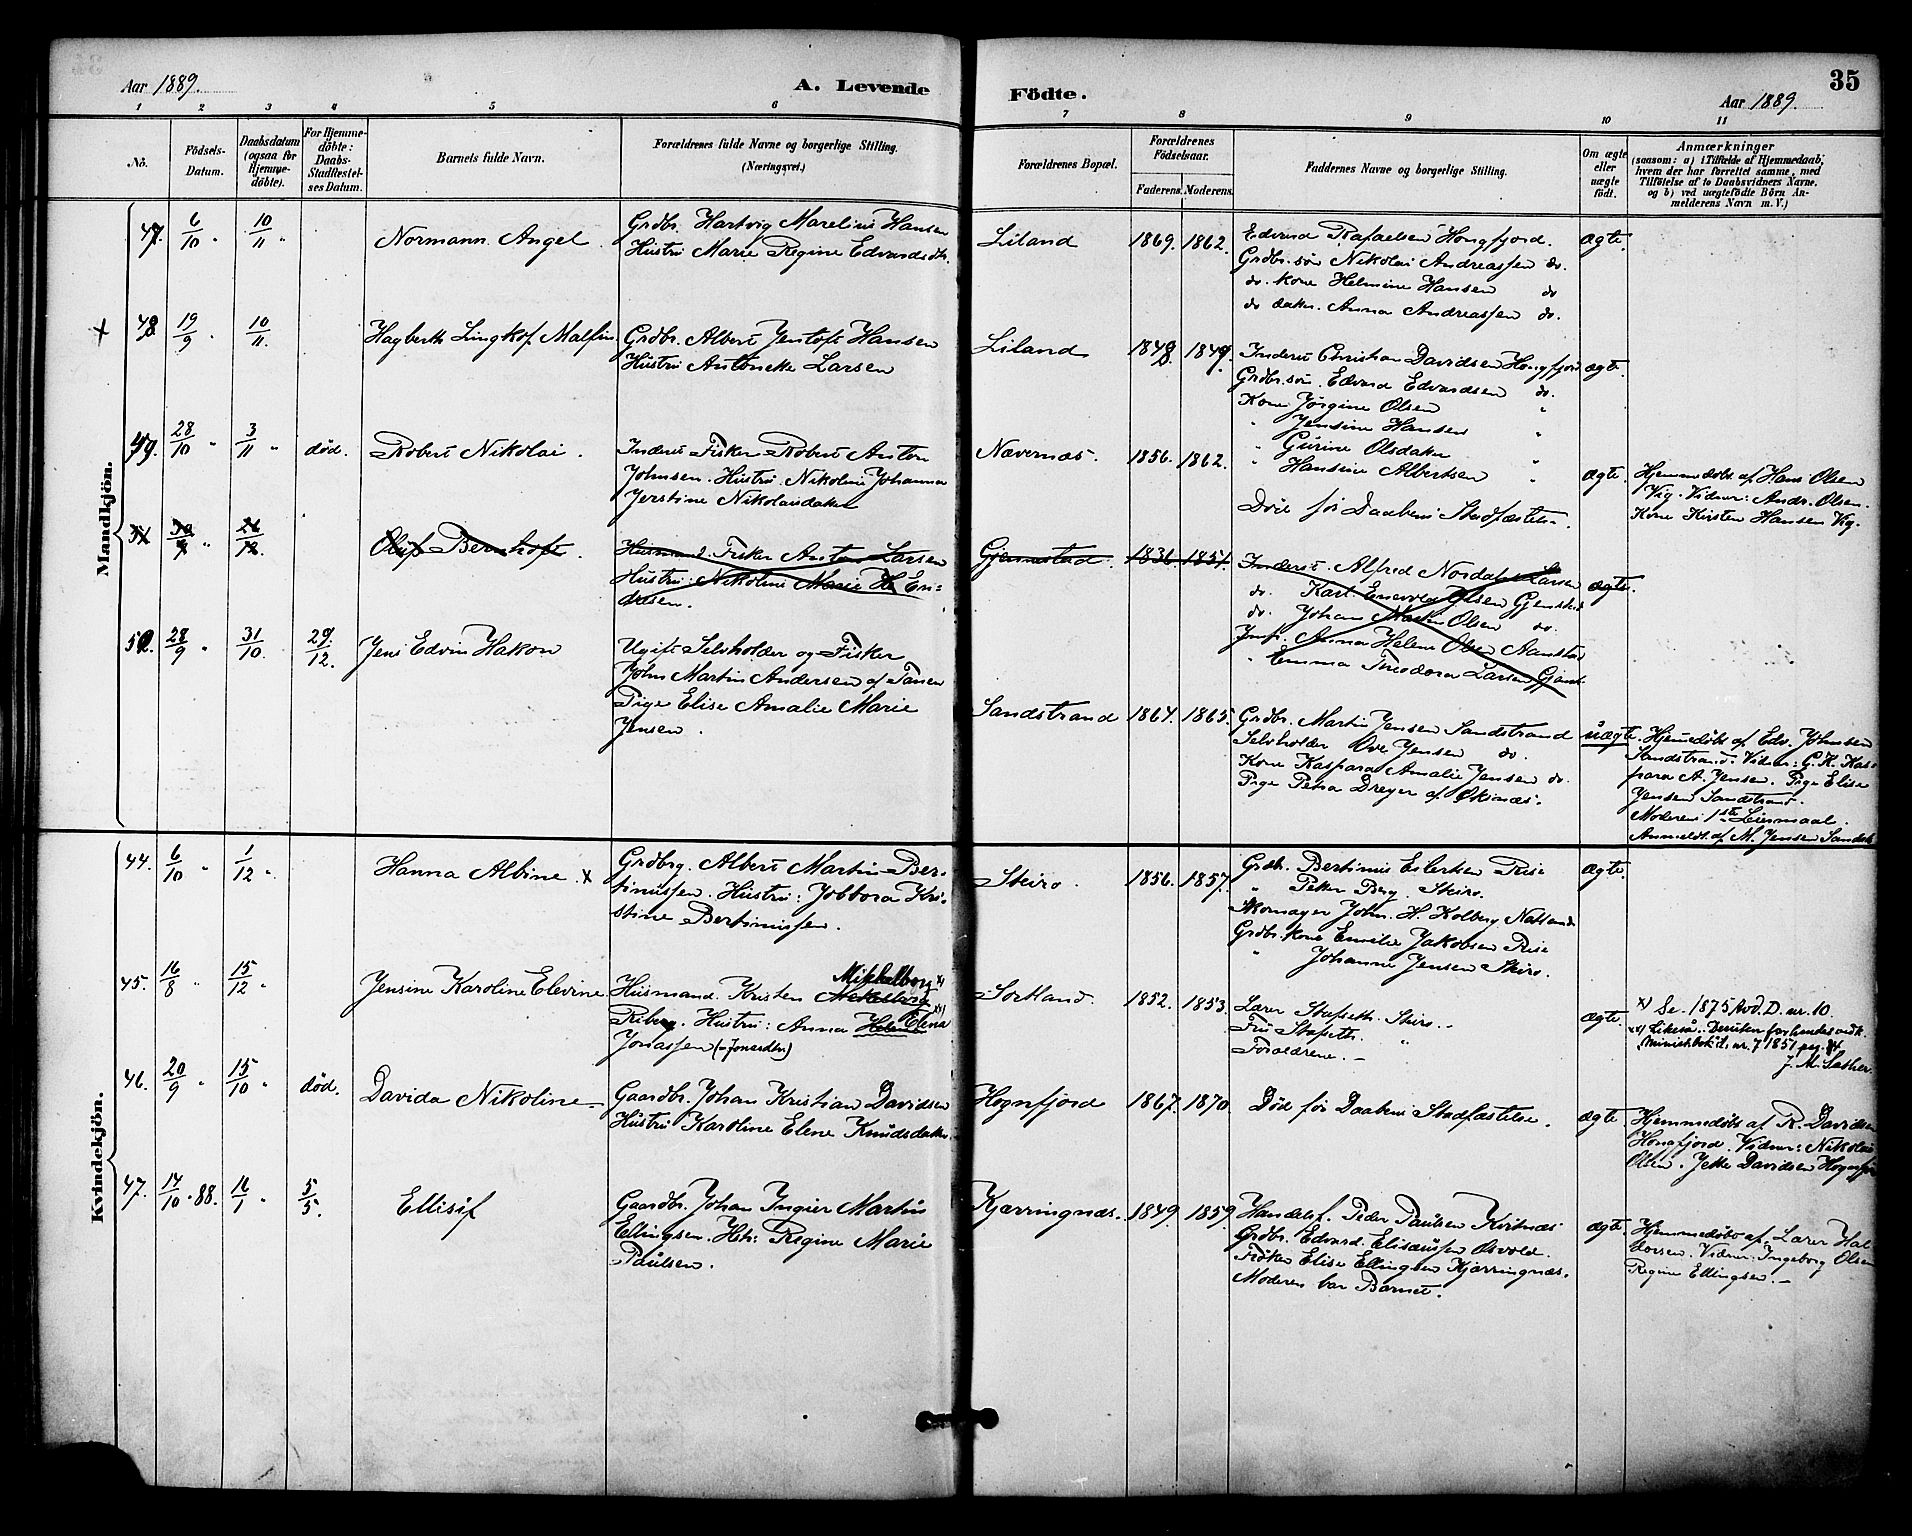 35
Aar 1889.
A. Levende
Födte.
Aar 1889.
1 2 3 4 5 6 7 8 9 10 11
No.
Födsels-Datum.
Daabsdatum (ogsaa for Hjemme-döbte).
For Hjemme-döbte: Daabs-Stadfæstel-ses Datum.
Barnets fulde Navn.
Forældrenes fulde Navne og borgerlige Stilling. (Næringsvei.)
Forældrenes Bopæl.
Forældrenes Födselsaar.
Faderens. Moderens.
Faddernes Navne og borgerlige Stilling.
Om ægte eller uægte födt.
Anmærkninger
(saasom: a) i Tilfælde af Hjemmedaab,
hvem der har forrettet samme, med
Tilföielse af to Daabsvidners Navne,
og b) ved uægtefödte Börn An-
melderens Navn m. V.)
Mandkjön.
47. 6/10 " 10/11 " Normann Angel.
Grdbr. Hartvig Marelius Hansen
Hustru Marie Regine Edvardsdtr.
Liland 1869. 1862.
Edvard Rafaelsen Hongfjord.
Grdbr. søn Nikolai Andreassen do.
do. kone Helmine Hansen do
do datter. Anna Andreassen do.
ægte.
x 48 19/9 " 10/11. Hagberth Lingkof Malfin
Grdbr. Albert Jentoft Hansen
Hustru Antonette Larsen
Liland 1848 1849.
Inderst Christian Davidsen Hongfjord
Grdbr. søn. Edvard Edvardsen do.
Kone Jørgine Olsen "
" Jensine Hansen "
" Gurine Olsdatter "
" Hansine Albertsen "
ægte.
49. 28/10 " 3/11 " død. Robert Nikolai.
Inderst Fisker Robert Anton
Johnsen. Hustru Nikoline Johanna
Jerstine Nikolaidatter
Nævernæs. 1856. 1862.
Død før Daabens Stadfæstelse.
ægte.
Hjemmedøbt af Hans Olsen
Vig. Vidner: Andr. Olsen.
Kone Kirsten Hansen Vig.
Oluf Bernhoft.
Husmand. Fisker Anton Larsen
Hustru: Nikoline Marie H Eri-
dresen.
Gjennestad. 1836 1851.
Inderst. Alfred Nordahl Larsen
do. Karl Enevold Olsen Gjenstad
do. Johan Martin Olsen do.
Jmf. Anna Helene Olsen Aanstad
" Emma Theodora Larsen Gjenst.
ægte.
50. 28/9 " 31/10. 29/12. Jens Edvin Hakon
Ugift Selvholder og Fisker
John Martin Andersen af Tanen
Pige Elise Amalie Marie
Jensen.
Sandstrand 1864. 1865.
Grdbr. Martin Jensen Sandstrand
Selvholder Ove Jensen do.
Kone Kaspara Amalie Jensen do.
Pige Petra Dreyer af Øksnæs.
uægte.
Hjemmedøbt af Edv. Johnsen
Sandstrand. Vidner: G. K. Kas-
para A. Jensen. Pige Elise
Jensen Sandstrand.
Moderens 1ste Leiermaal.
Anmeldt af M. Jensen Sandstr.
Kvindekjön.
44. 6/10 " 1/12 ". Hanna Albine x
Grdbrg. Albert Martin Ber-
tinussen. Hustru: Jobbora Kri-
stine Bertinussen.
Skiro. 1856. 1857.
Grdbr. Bertinus Eilertsen Rise
" Peter Berg Skiro.
Skomager John. H. Kolberg Natland
Grdbr. kone Emelie Jakobsen Rise
" Johanne Jensen Skiro.
ægte.
45. 16/8 " 15/12 " Jensine Karoline Elevine
Mikkelborg x)
Husmand. Kristen Mekelborg
Riberg. Hustru: Anna Helene Elena xx)
Jonassen (=Jonasdtr)
Sortland. 1852. 1853.
Lærer Stafseth. Skiro.
Fru Stafseth. "
Forældrene.
ægte.
x) Se. 1875 Avd. D. nr. 10.
xx) Likeså. Desuten forhendes vedk.
Ministbok d. nr. 7 1851 pag. 34
J. M. Sæther.
46. 20/9 " 15/10 " død. Davida Nikoline
Gaardbr. Johan Kristian Davidsen
Hustru Karoline Elene Knudsdatter
Hognfjord 1867. 1870.
Død før Daabens Stadfæstelse.
ægte
Hjemmedøbt af R. Davidsen
Hognfjord. Vidner: Nikolai
Olsen. Jette Davidsen Hognfjo
47. 14/10 88. 16/1 " 5/5. Ellisif
Gaardbr. Johan Ingier Martin
Ellingsen. Hstr: Regine Marie
Paulsen.
Kjærringnæs. 1849. 1859.
Handelsf. Peder Paulsen Kvitnæs
Grdbr. Edvard Elisæussen Osvold.
Frøken Elise Ellingsen Kjærringnæs.
Moderen bar Barnet.
ægt.
Hjemmedøbt af Lærer Hal-
dorsen. Vidner: Ingeborg Olsen
Regine Ellingsen.